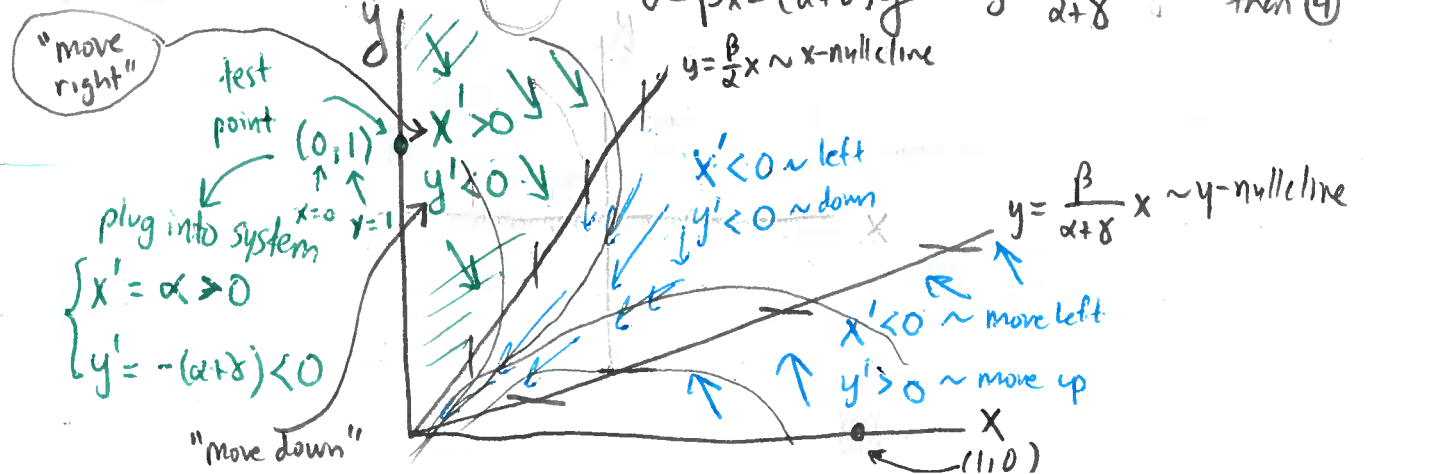 y
α+γ
then ④
"move
right"
test
point
(0,1)
x=0 y=1
plug into system
x' = α > 0
y' = -(α+γ) < 0
"move down"
x' > 0
y' < 0
y = β/α x ~ x-nullcline
x' < 0 ~ left
y' < 0 ~ down
x
y = β/(α+γ) x ~ y-nullcline
x' < 0 ~ move left
y' > 0 ~ move up
x
(1,0)